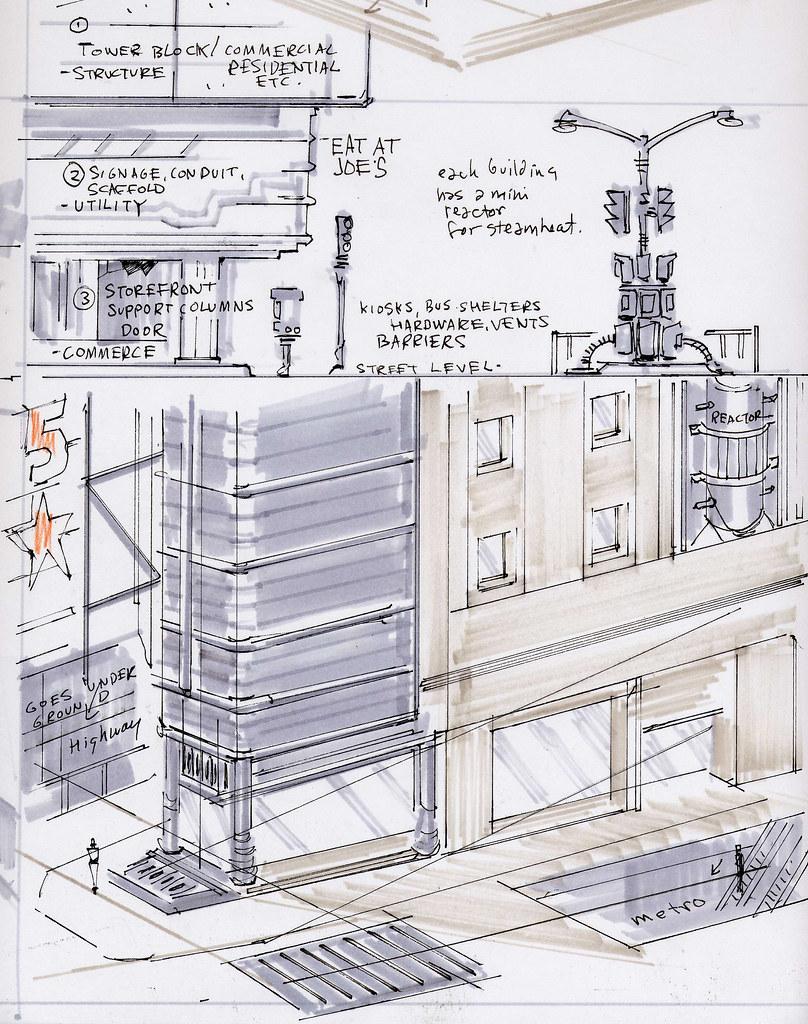 1
TOWER BLOCK/COMMERCIAL
-STRUCTURE RESIDENTIAL
ETC.
2 SIGNAGE, CONDUIT,
SCAFFOLD
-UTILITY
EAT AT
JOE'S
each building
has a mini
reactor
for steamheat.
3 STOREFRONT
SUPPORT COLUMNS
DOOR
-COMMERCE
KIOSKS, BUS SHELTERS
HARDWARE, VENTS
BARRIERS
STREET LEVEL-
5
REACTOR
GOES UNDER
GROUND
Highway
metro